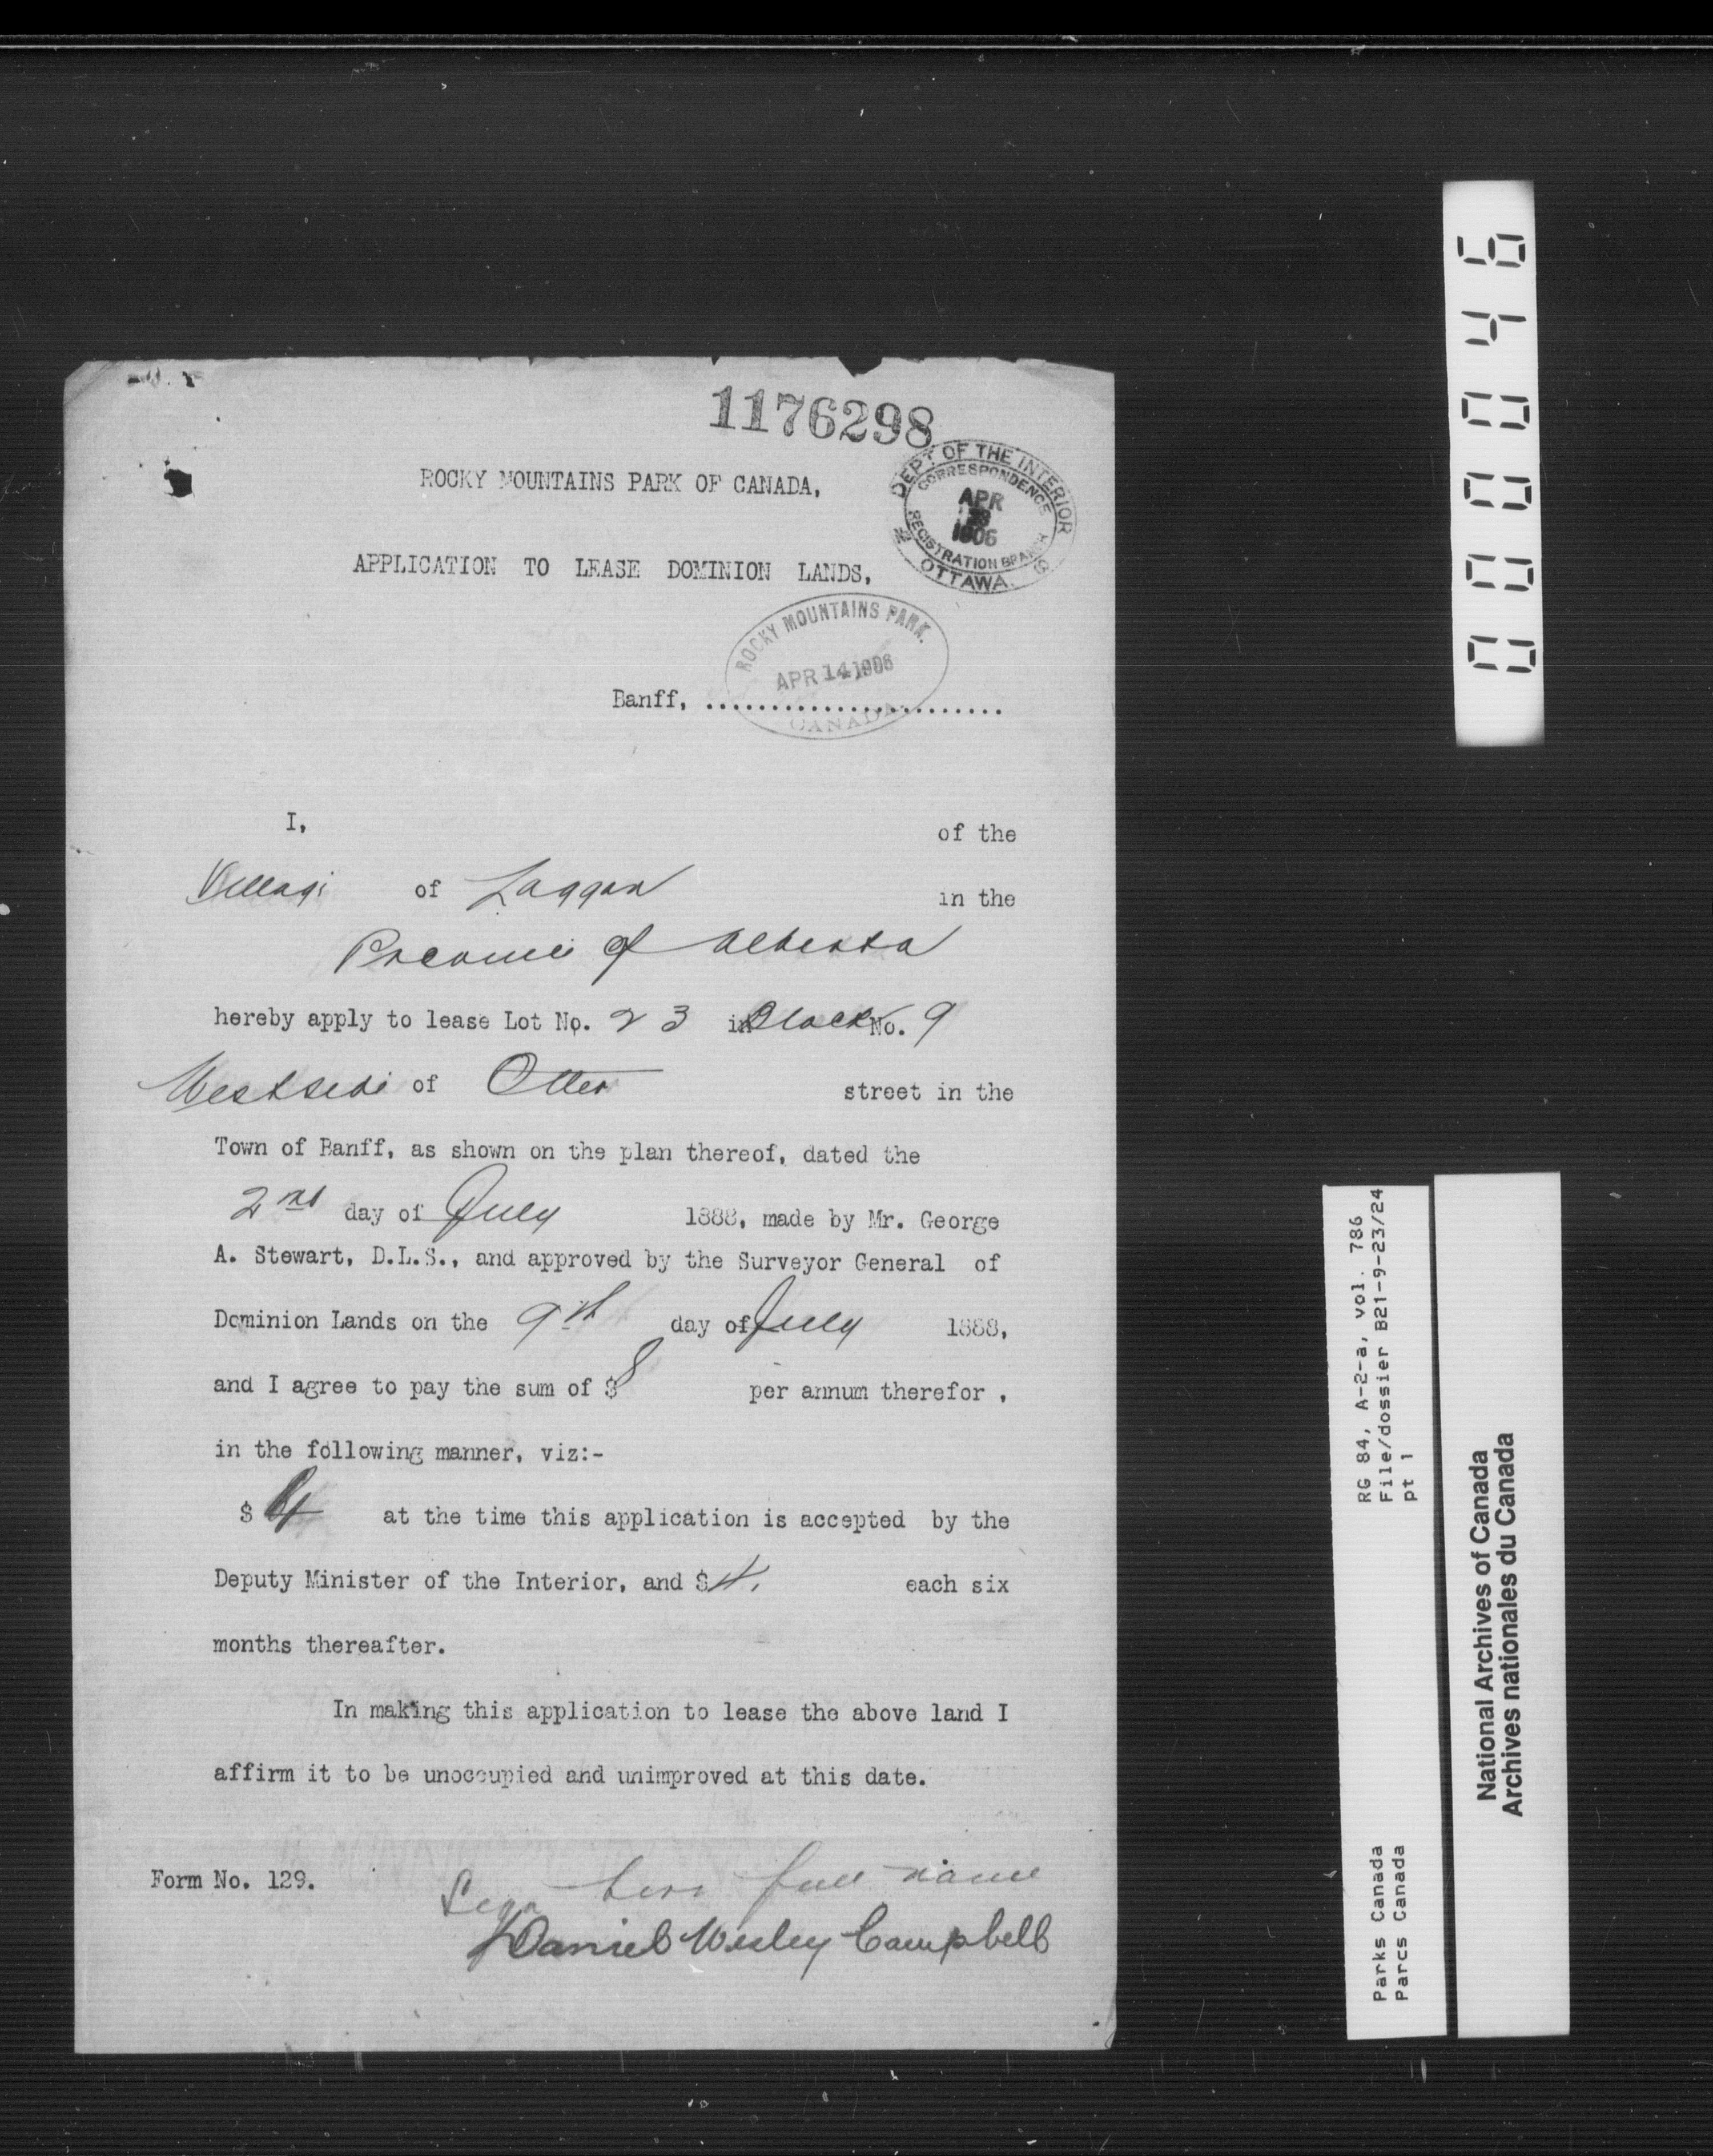 1176298
ROCKY MOUNTAINS PARK OF CANADA,
DEPT OF THE INTERIOR
CORRESPONDENCE
APR
1906
REGISTRATION BRANCH
OTTAWA.
APPLICATION TO LEASE DOMINION LANDS,
ROCKY MOUNTAINS PARK.
APR 14 1906
CANADA
Banff, ........................
I, of the
Village of Laggan in the
Province of Alberta
hereby apply to lease Lot No. 23 in Block No. 9
West side of Otter street in the
Town of Banff, as shown on the plan thereof, dated the
2nd day of July 1888, made by Mr. George
A. Stewart, D.L.S., and approved by the Surveyor General of
Dominion Lands on the 9th day of July 1888,
and I agree to pay the sum of $8 per annum therefor ,
in the following manner, viz:-
$ 4 at the time this application is accepted by the
Deputy Minister of the Interior, and $4. each six
months thereafter.
In making this application to lease the above land I
affirm it to be unoccupied and unimproved at this date.
Form No. 129.
Sign here full name
Daniel Wesley Campbell
000046
RG 84, A-2-a, vol. 786
File/dossier B21-9-23/24
pt 1
Parks Canada
Parcs Canada
National Archives of Canada
Archives nationales du Canada